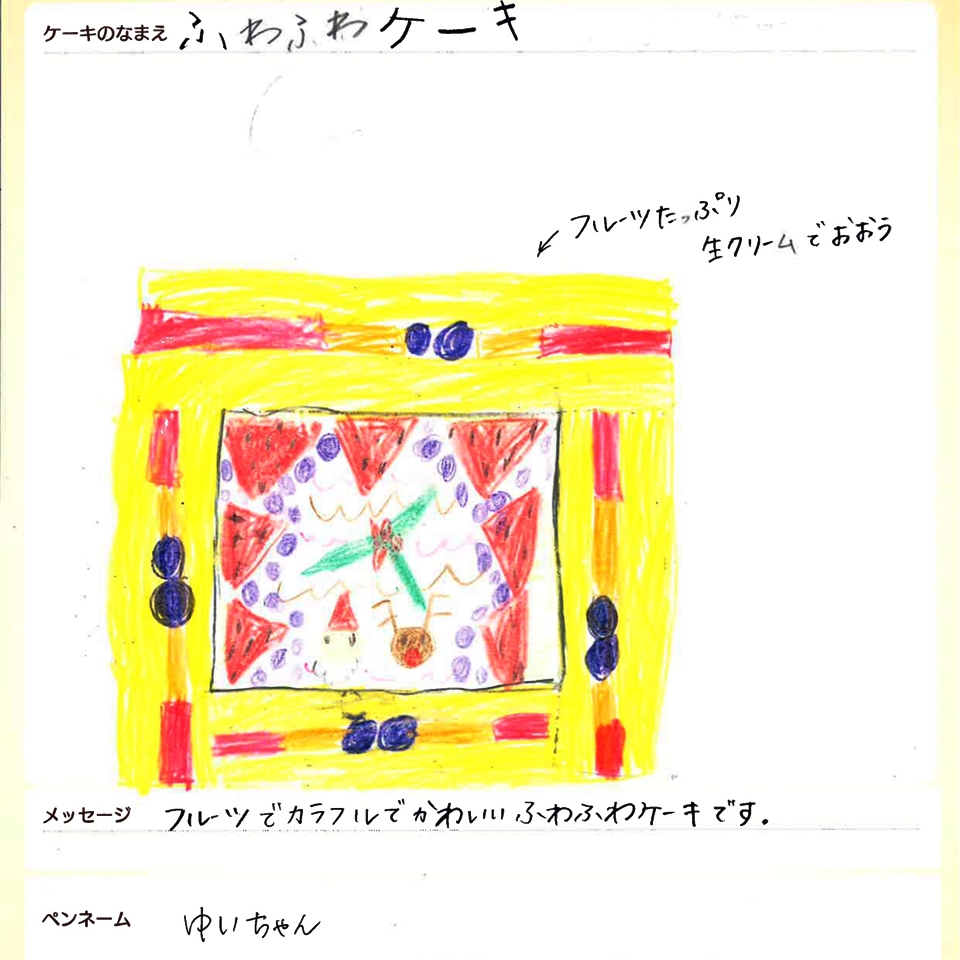 ケーキのなまえ ふわふわケーキ
フルーツたっぷり
生クリームでおおう
メッセージ フルーツでカラフルでかわいいふわふわケーキです.
ペンネーム ゆいちゃん